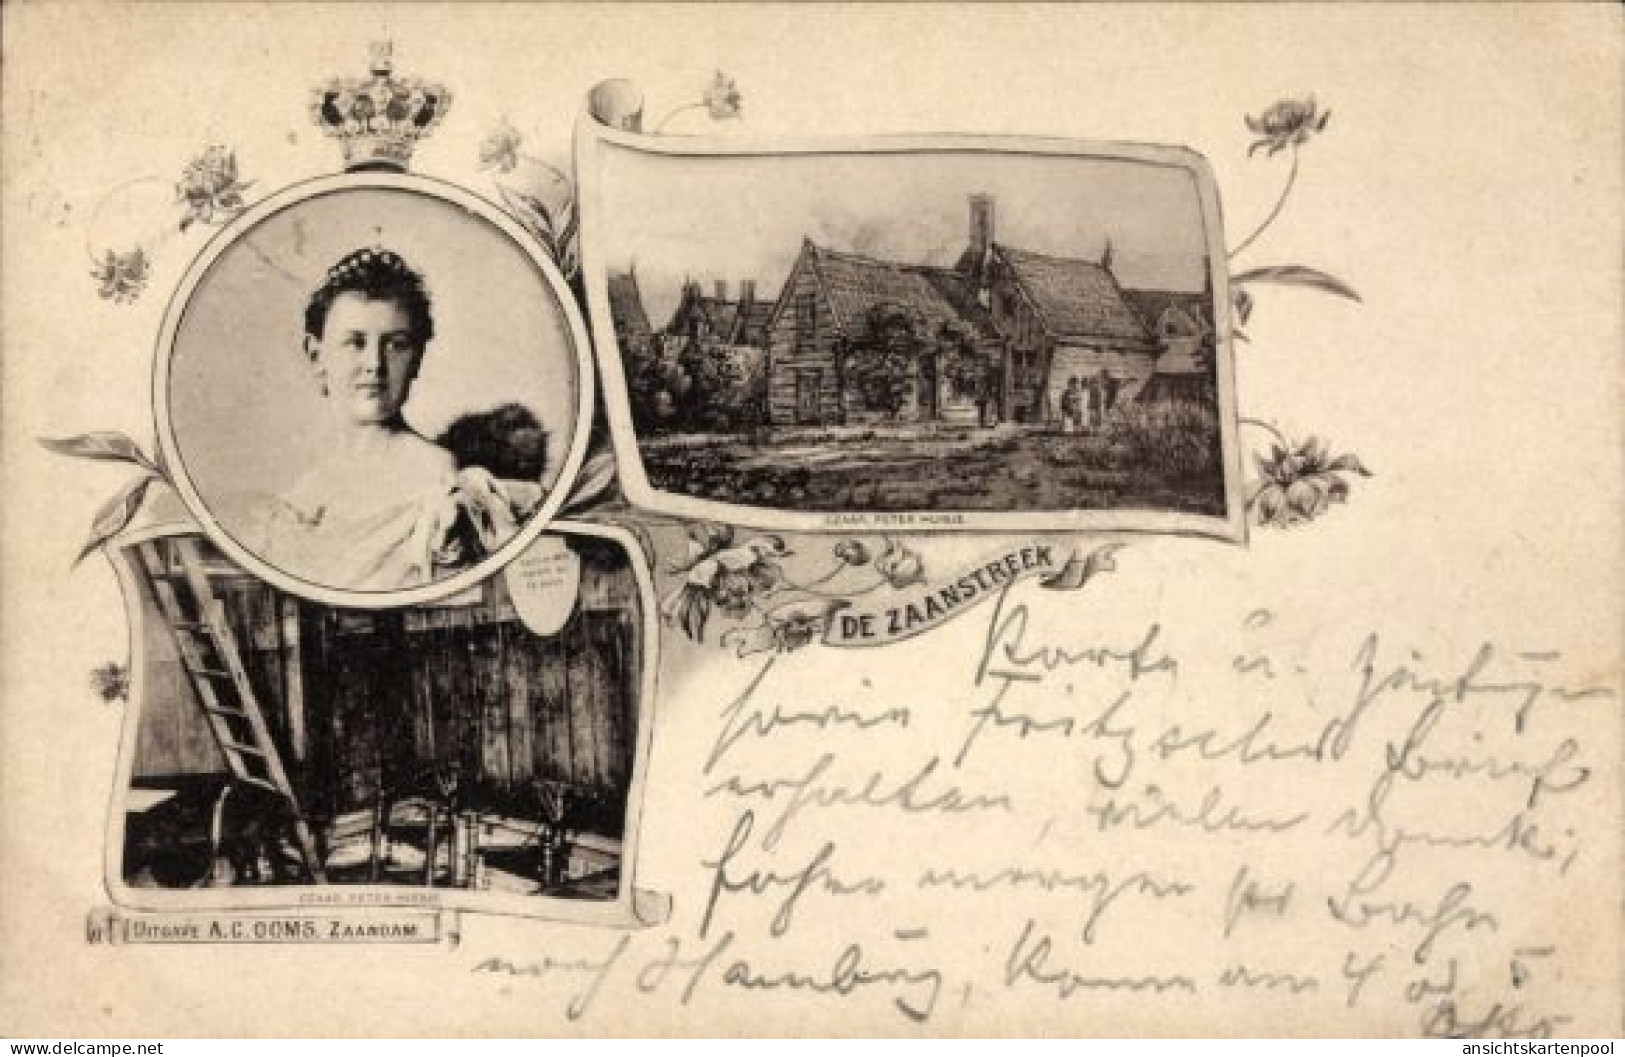 CZAAR PETER HUISJE.
DE ZAANSTREEK
Karte u. Zeitungen
sowie Fritzsches Brief
erhalten, vielen Dank;
fahre morgen per Bahn
nach Hamburg, komme am 4 od 5
Otto
CZAAR PETER HUISJE.
UITGAVE A.C. OOMS. ZAANDAM.
www.delcampe.net
ansichtskartenpool